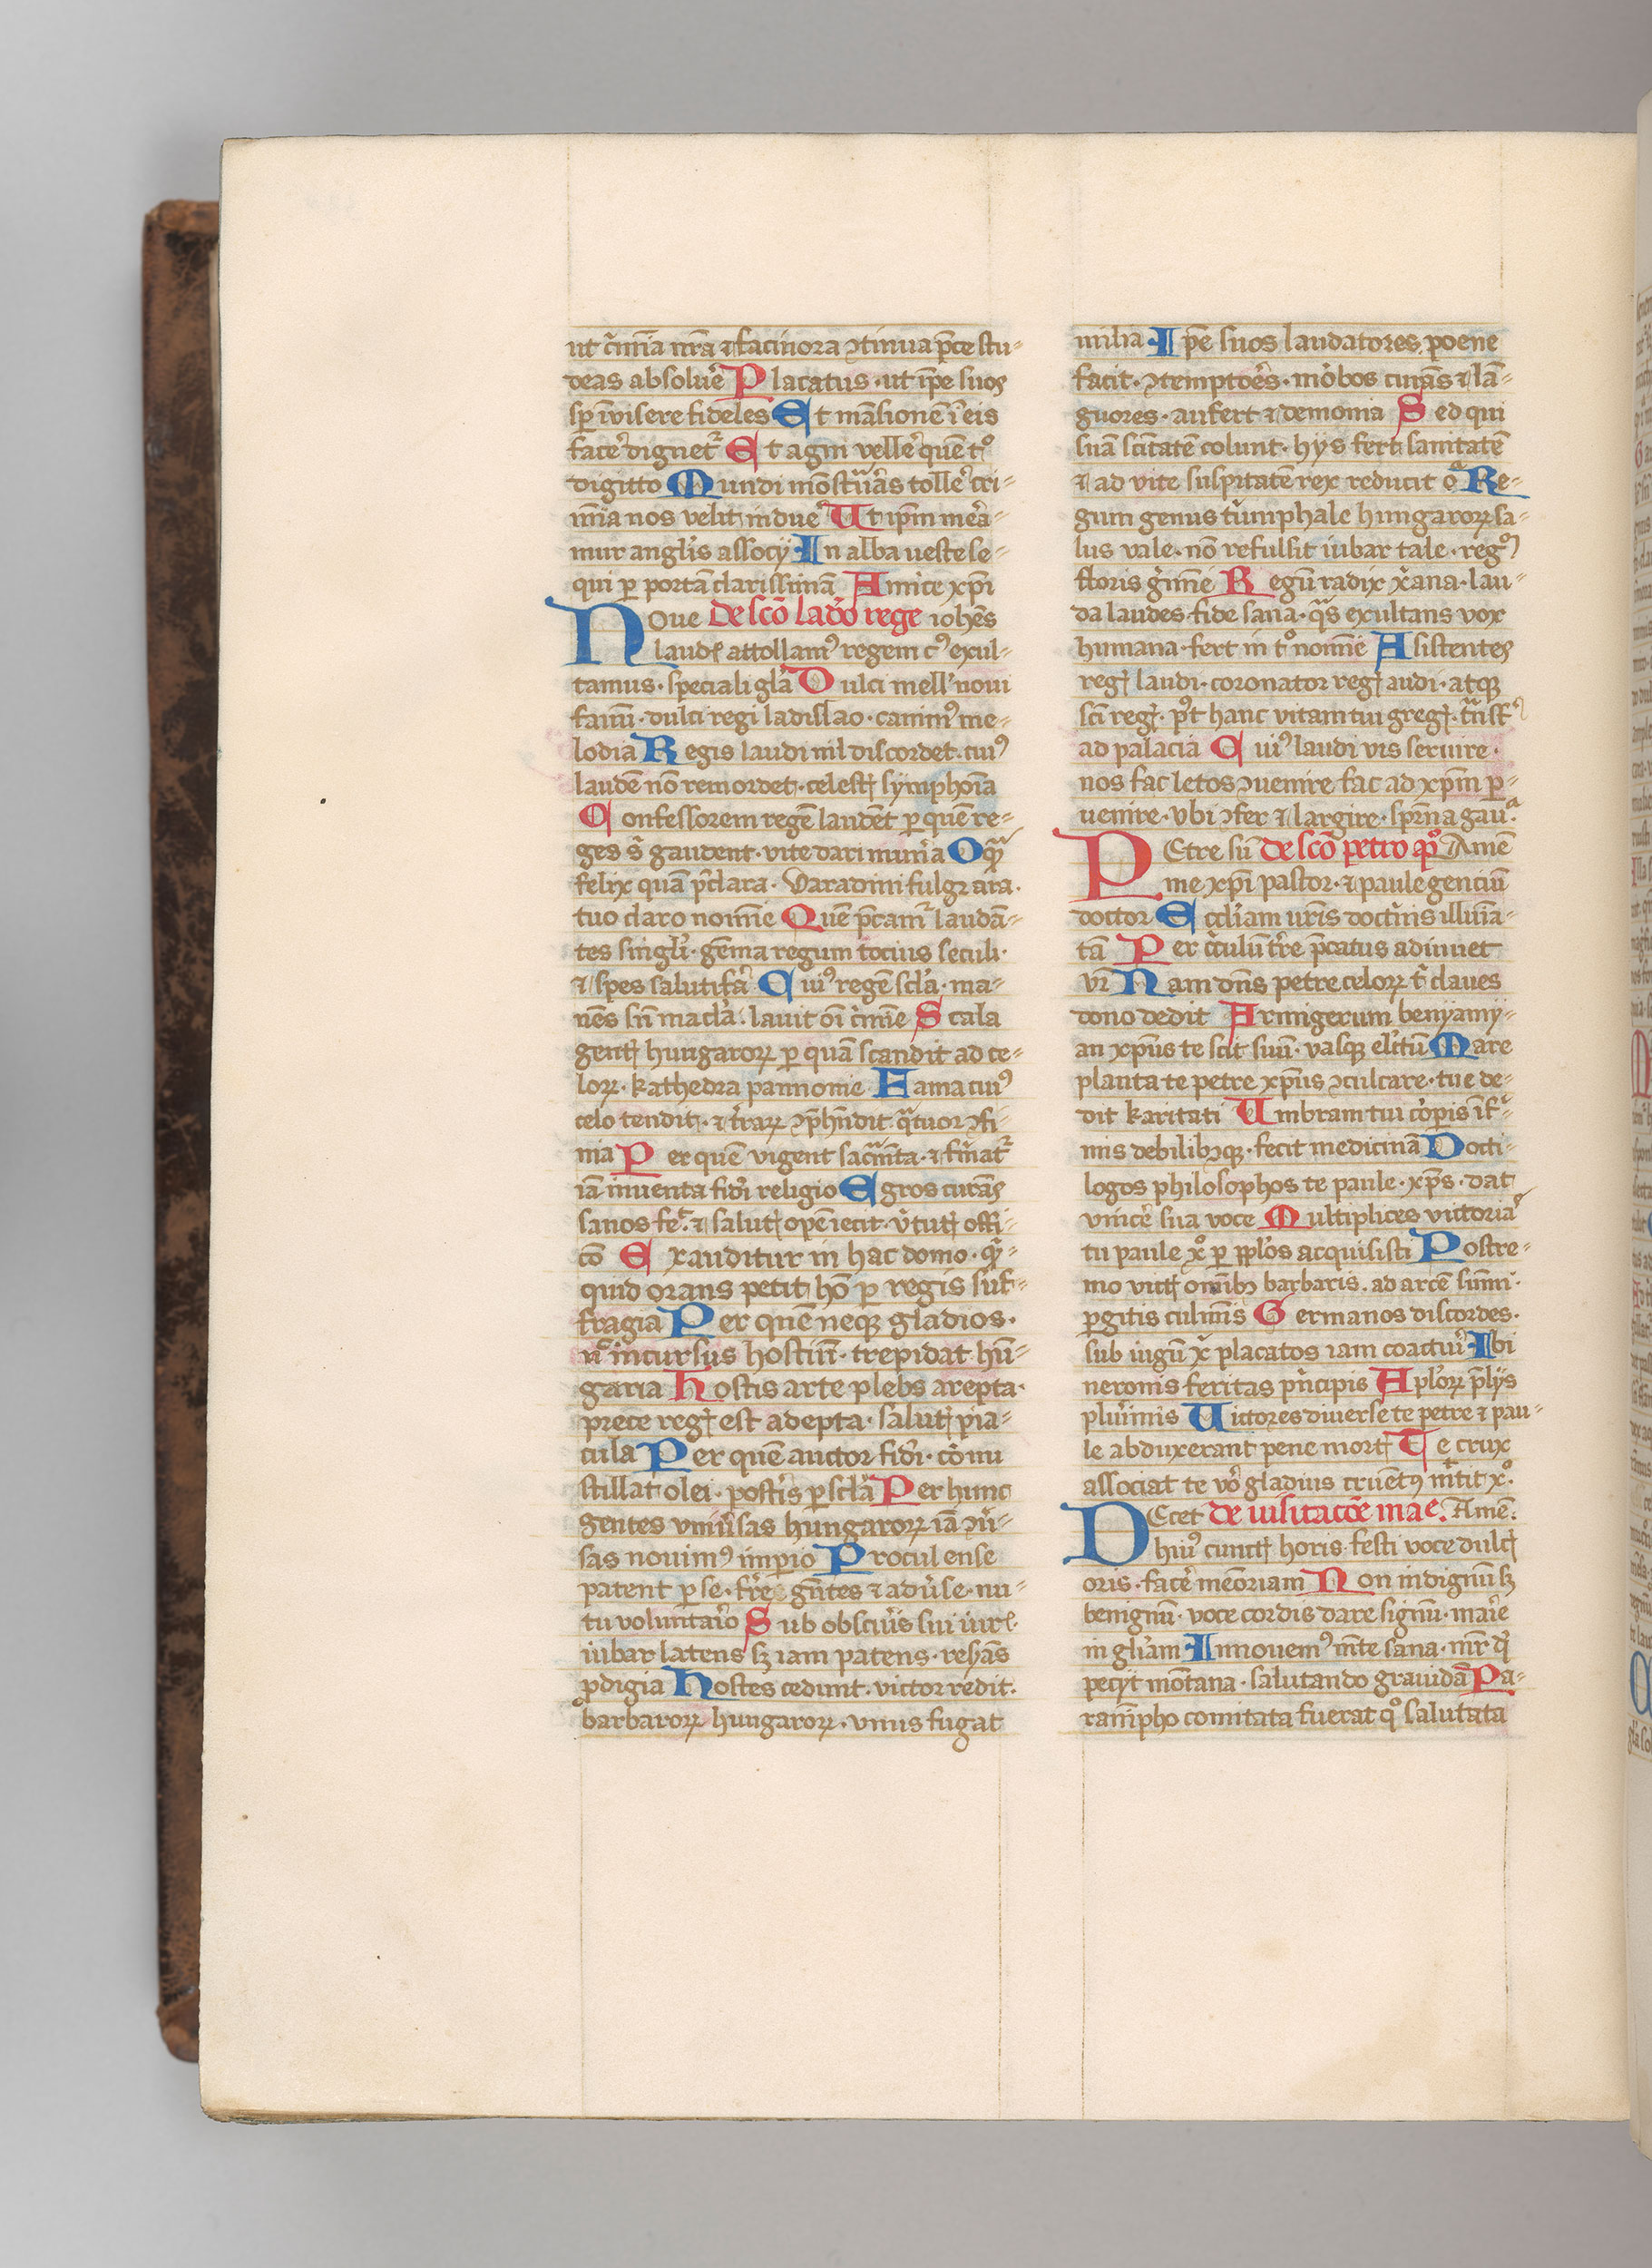 ut c̃nīa nr̄a ⁊ facinora ↄtinua p̄ce stu-
deas absolu͛e Placatus · ut ip̄e suos
sp̄ īvisere fideles Et mãsionē ī eis
face͛ dignet᷑ Et agni velle͛ quē tͦ
digitto Mundi mōst̃vãs tolle͛ cri-
mīa nos velit indue͛ Ut ip̄m meã-
mur angl̓is assocÿ In alba ueste se-
qui ꝑ portã clarissimã Amice xp̄i
NOue De scō lad̓o rege iohēs
laudꝭ attollamꝰ regem cꝰ exul-
tamus · speciali gl̃a Dulci mell̓ noui
fauū · dulci regi ladislao · canimꝰ me-
lodia Regis laudi nil discordet · cuiꝰ
laudē nō remordet · celestꝭ symphoĩa
Confessorem regē laudēt ꝑ quē re-
ges s̃ gaudent · vite dari mun̓a O qᷓ
felix quã p̃clara · Varadini fulgꝫ ara ·
tuo claro noīe Quē p̄camᷣ laudã-
tes singl̓r̓ · gēma regum tocius seculi ·
⁊ spes salutif̓a Cuiꝰ regē scl̓a · ma-
nēs sn̄ macl̓a · lauit oī c̓mīe Scala
gentꝭ hungaroꝝ ꝑ quã scandit ad ce-
loꝝ · kathedra pannonie Fama cuiꝰ
celo tendit · ⁊ tr̓aꝝ ↄp̄hn̄dit · qᷓtuor ↄfi-
nia Per quē vigent sacᷓmta · ⁊ f̓matᷣ
iã inuenta fid̓i religio Egros curãs
sanos fec̓ · ⁊ salutꝭ opē iecit · v̓tutꝭ offi-
cō Exauditur in hac domo · qᷓ-
quid orans petit hō ꝑ regis suf-
fragia Per quē neqꝫ gladios ·
nᶜ incursus hostiū · trepidat hū-
garia Hostis arte plebs arepta ·
prece regꝭ est adepta · salutꝭ pia-
cula Per quē auctor fid̓i · cōnu
stillat olei · post̓is ꝑ scl̓a Per hunc
gentes vniu̓sas hungaroꝝ iã ↄu̓-
sas nouimꝰ imperio Procul ense
patent ꝑ se · fr̓e gn̄tes ⁊ adu̓se · nu-
tu voluntar̓io Sub obscur̓is sui iurꝭ
iubar latens sꝫ iam patens · rehãs
ꝓdigia Hostes cedunt · victor redit ·
barbaroꝝ hungaroꝝ · vnus fugat
milia · Ipe suos laudatores poene
facit · ↄtemptōēs · mōbos curãs ⁊ lã-
guores · aufert ⁊ demonia Sed qui
suã scītatē colunt · hys fert sanitatē
⁊ ad vite suspitatē rex reducit oᷓ Re-
gum genus t̓umphale hungaroꝝ sa-
lus vale · nō refulsit iubar tale · regꝰ
floris g̓mīe Regū radix x̓ana · lau-
da laudes fide sana · qᷓs exultans vox
humana · fert in tͦ noīe Asistentes
regꝭ laudi · coronator regꝭ audi · atqꝫ
sc̄i regꝭ · pꝰt hanc vitam tui gregꝭ · tᷓnsfꝰ
ad palacia Cuiꝰ laudi vis seruire ·
nos fac letos ↄuenire fac ad xp̄m ꝑ-
uenire · vbi ↄfer ⁊ largire · sp̄rna gauᵃ
PEtre sū De scō petro apͦ Amē
me xp̄i pastor · ⁊ paule genciū
doctor Eccl̓iam ur̄is doct̓nis illuīa-
tã Per c̓culū tr̓re p̄catus adiuuet
vr̄ Nam dn̄s petre celoꝝ t̓ claues
dono dedit Armigerum benyamy-
an xp̄us te scit suū · vasqꝫ el̓itū Mare
planta te petre xp̄us ↄculcare · tue de-
dit karitati Umbram tui cōpis īfᷓ-
mis debilibꝫqꝫ · fecit medicinã Docti-
logos philosophos te paule · xp̄s · dat
vince͛ sua voce Multiplices victoriaˢ
tu paule xͦ ꝑ pp̄l̓os acquisisti Postre-
mo victꝭ om̄ibꝫ barbaris · ad arcē sūmi ·
ꝑgitis culmīs Germanos discordes ·
sub iugū x̃ placatos iam coactur̓i Ibi
neronis feritas p̓ncipis Apl̓oꝝ p̄lÿs
plur̓imis Uictores diuerse te petre ⁊ pau-
le abduxerant pene mortꝭ Te crux
associat te v̓o gladius cruētꝰ m̄tit xͦ ·
DEcet de uisitacōe mac̓ Amē ·
huiꝰ cunctꝭ horis · festi voce dulcꝭ
oris · face͛ meōriam Non indignū sꝫ
benignū · voce cordis dare signū · mar̓ie
in gl̓iam Innouemꝰ mēte sana · mr̄ qͥ
pecÿt mōtana · salutando grauidã Pa-
ranīpho comitata fuerat qͦ salutata